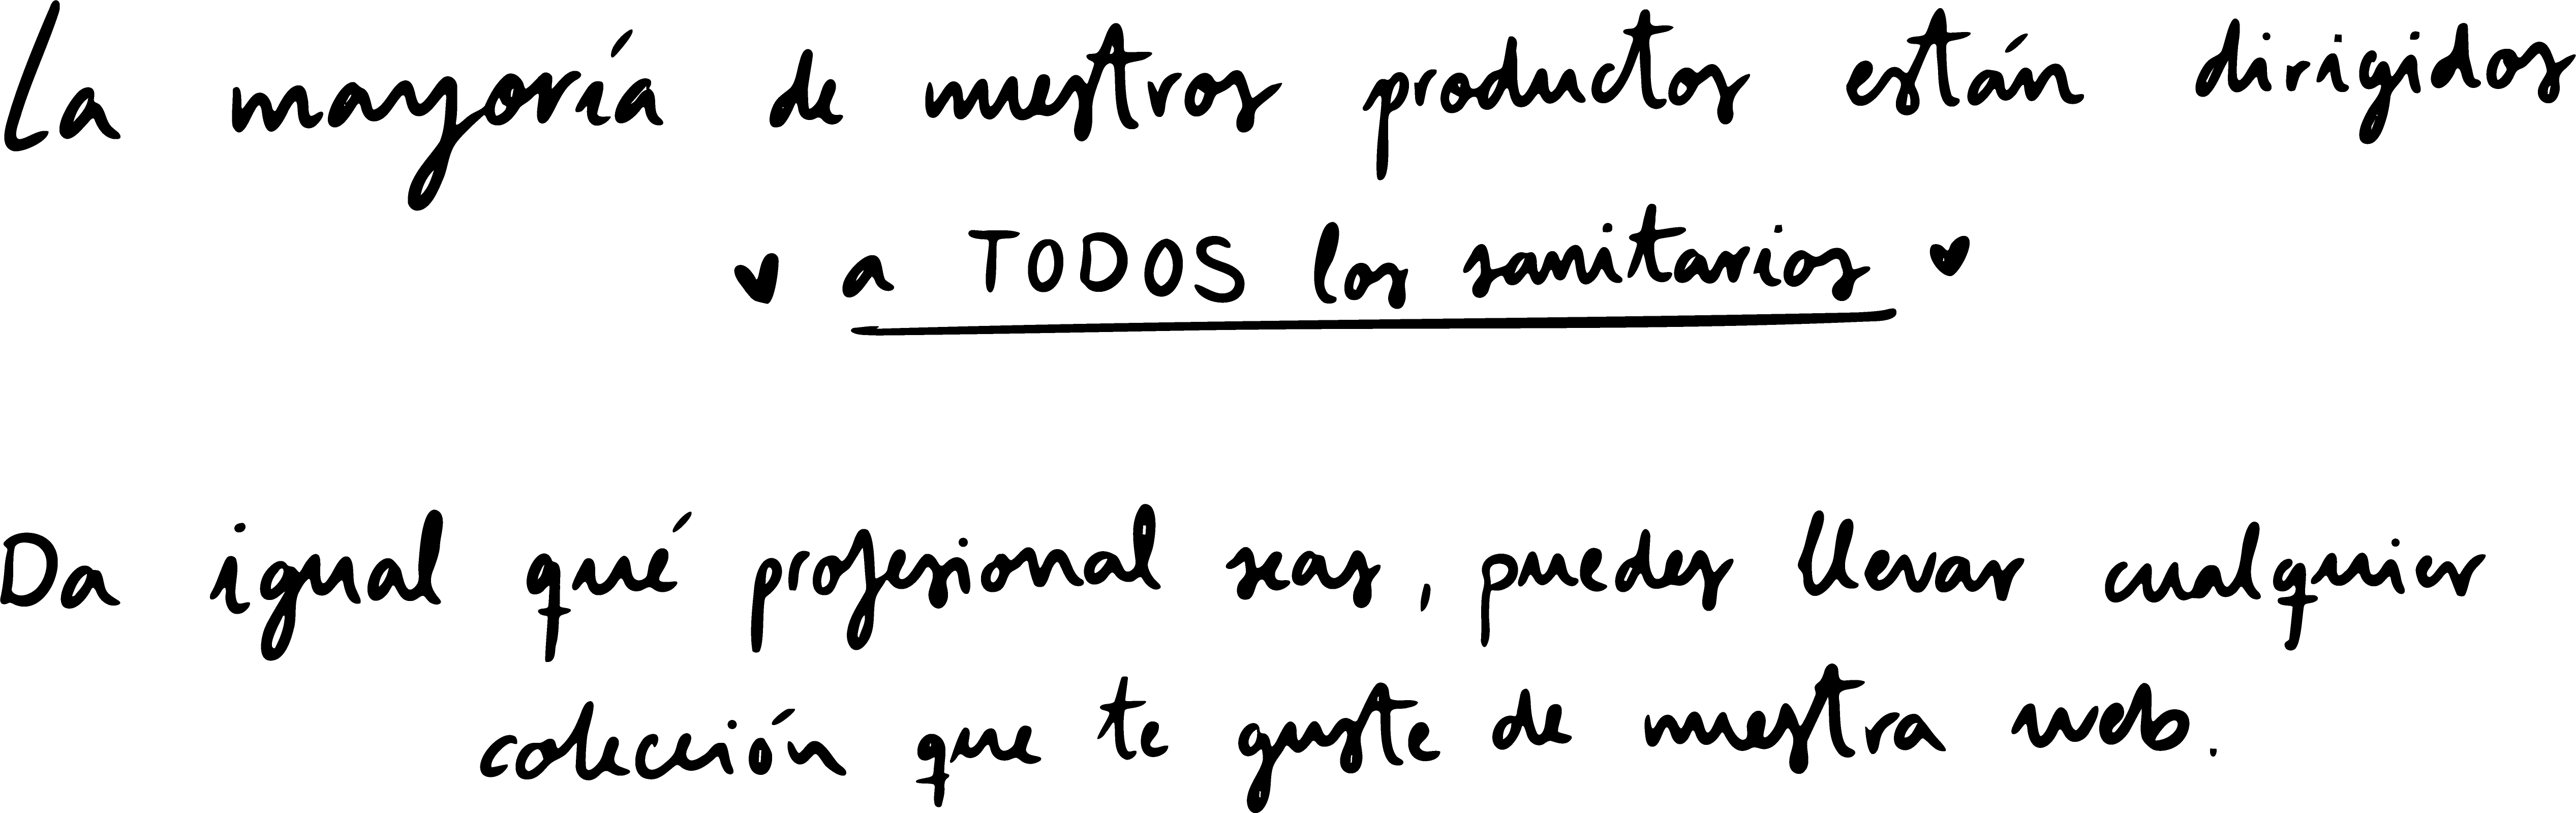 La mayoría de nuestros productos están dirigidos
♥ a TODOS los sanitarios ♥
Da igual qué profesional seas, puedes llevar cualquier
colección que te guste de nuestra web.